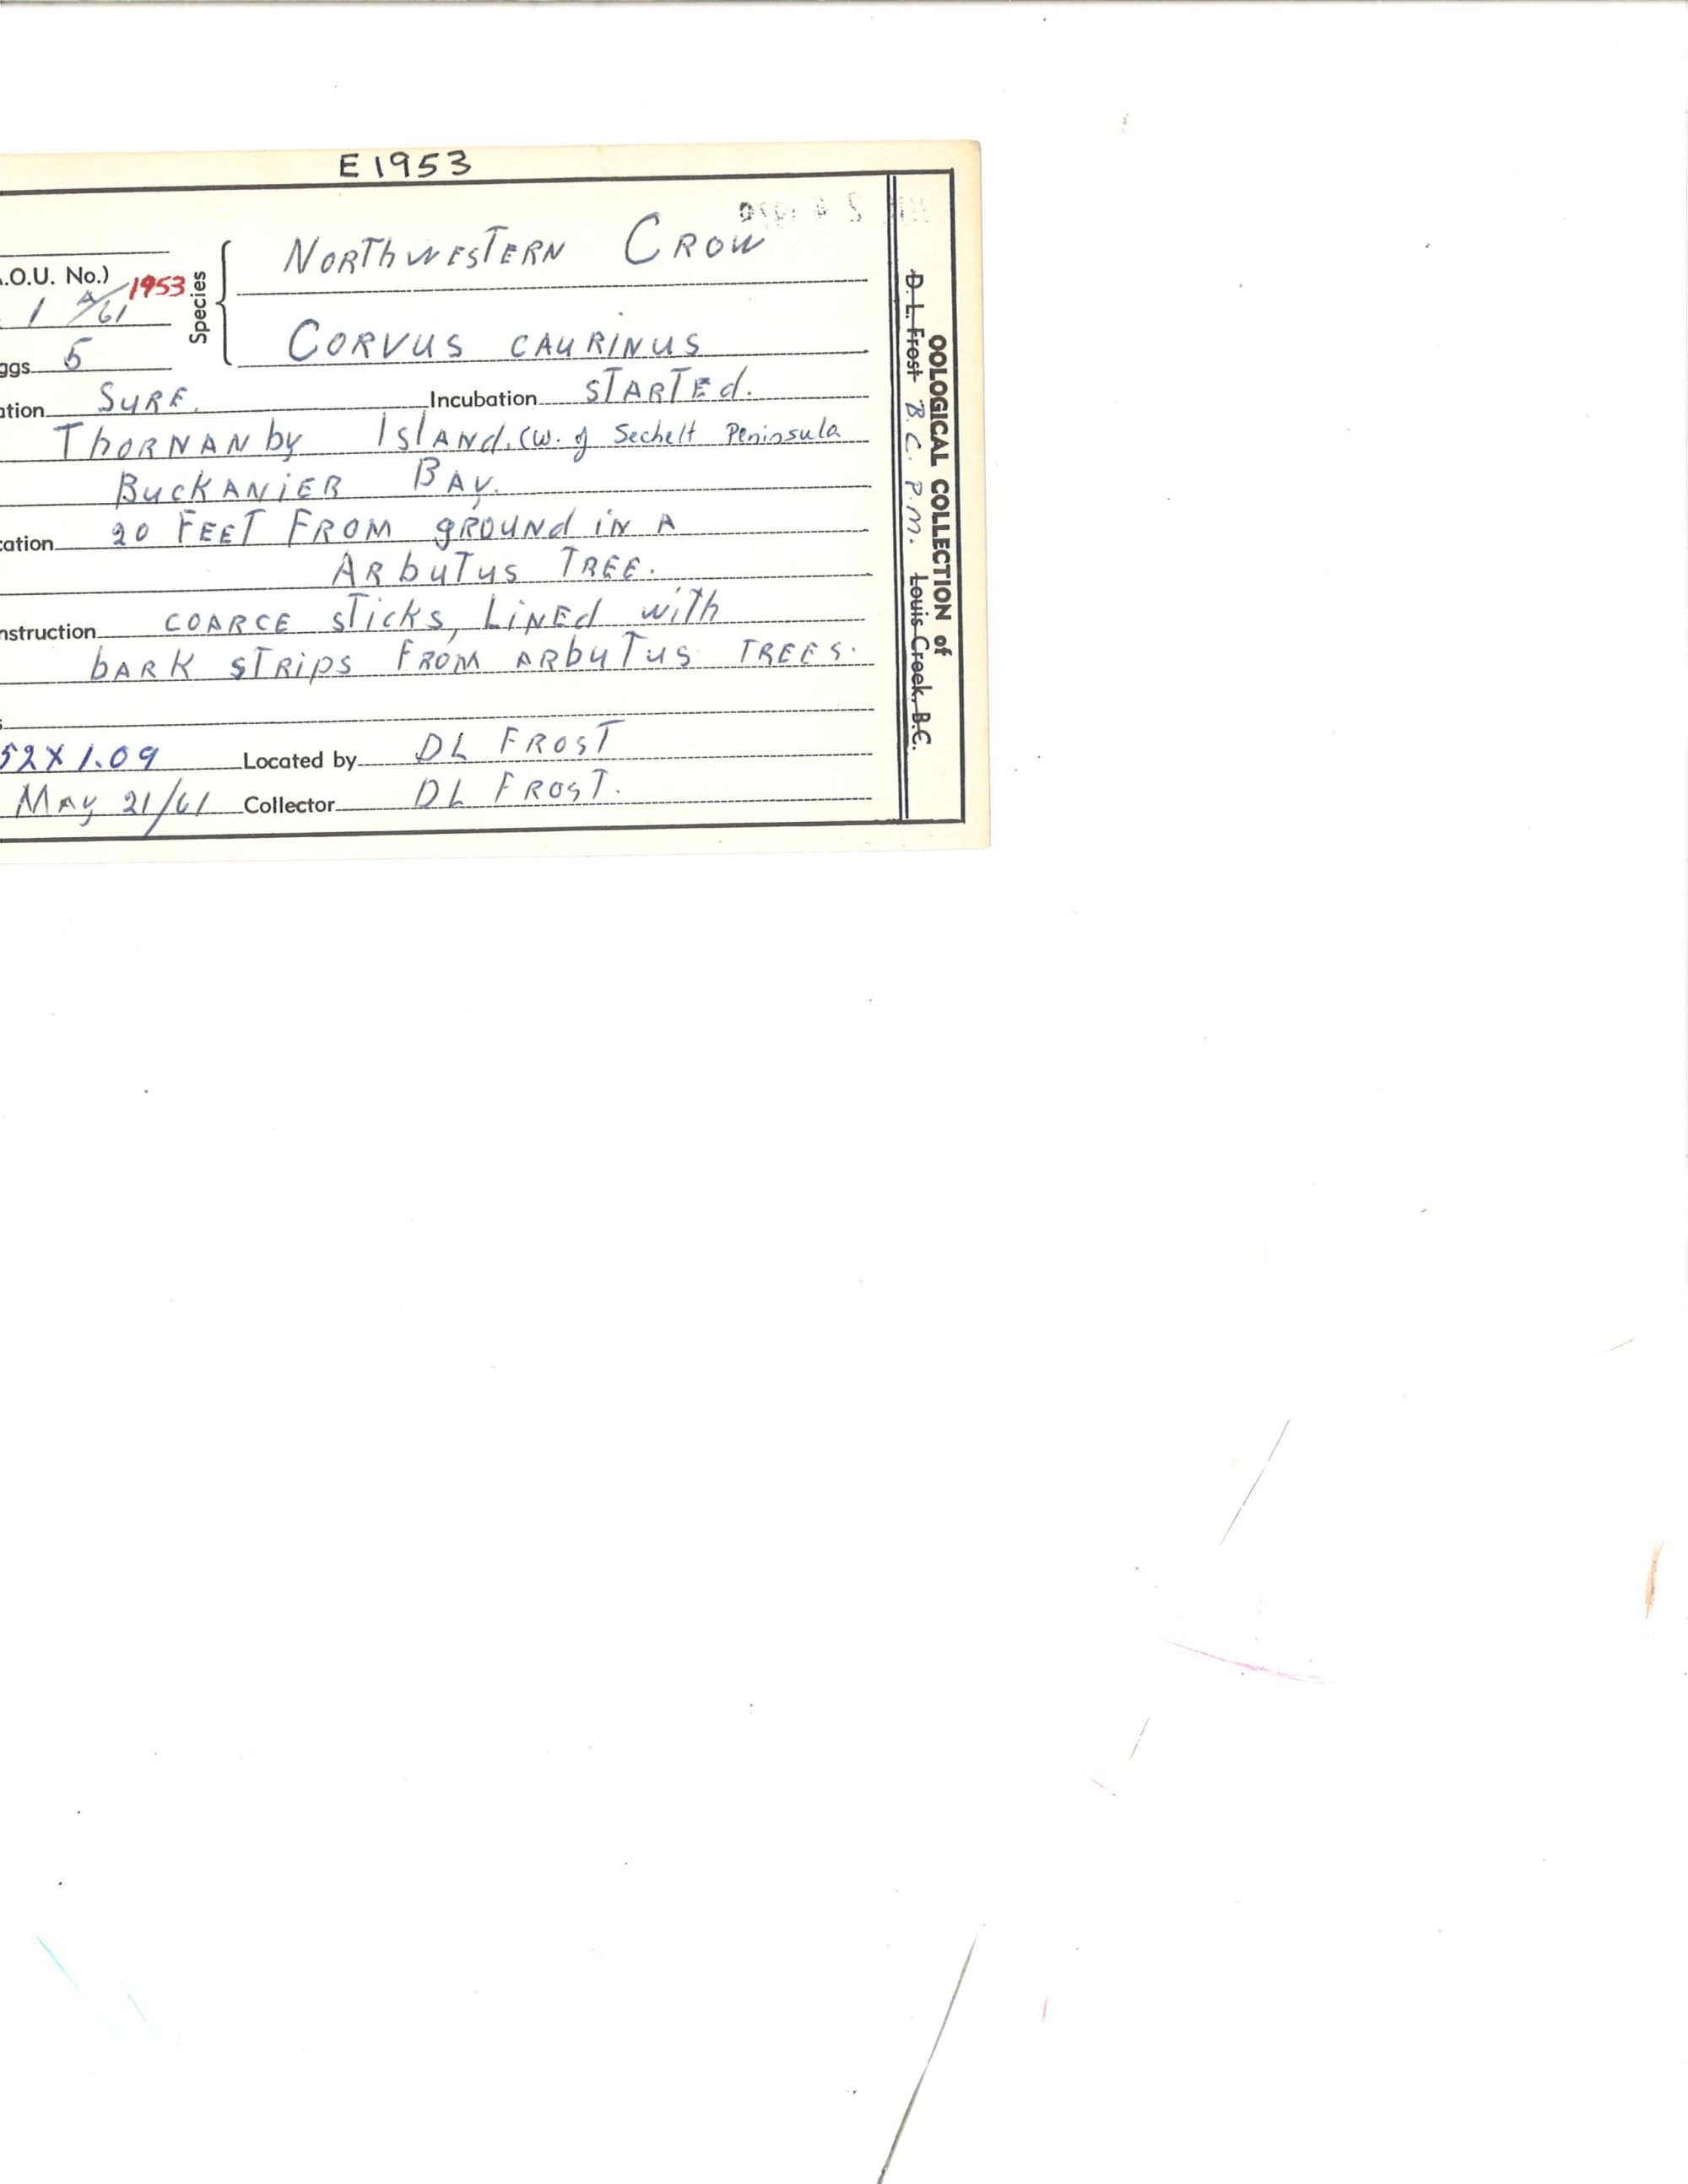 E1953
Northwestern Crow
.O.U. No.) 1953
1 A/61
Species
Corvus caurinus
ggs 5
ation Sure. Incubation started.
Thornanby Island. (W. of Sechelt Peninsula
Buckanier Bay.
cation 20 feet from ground in a
Arbutus tree.
nstruction coarce sticks, lined with
bark strips from arbutus trees.
s
52 x 1.09 Located by DL Frost
May 21/61 Collector DL Frost.
OOLOGICAL COLLECTION of
D. L. Frost B.C.P.M. Louis Creek, B.C.